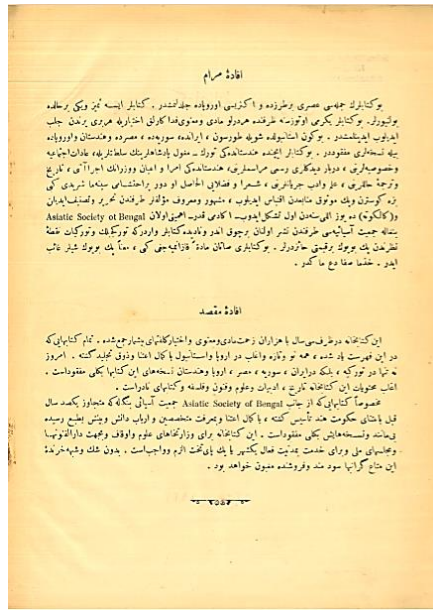 افادهٔ مرام
بوكتابلرك جمله‌سى عصرى برطرزده و اكثريسى اوروپاده جلدلنمشدر . كتابلر ايسه تميز ويكى برحالده
بولنيورلر. بوكتابلر يكرمى اوتوزسنه ظرفنده هربرلو مادى ومعنوى فداكارلق اختياريله هربرى برندن جلب
ايديلوب ايدينلمشدر . بوكون استانبولده شويله طورسون ، ايرانده، سوريه‌ده ، مصرده وهندستان واوروپاده
بيله نسخه‌لرى مفقوددر. بوكتابلر ايچنده هندستانده‌كى تورك ـ مغول پادشاهلرينك سلطنتلريله، عادات اجتماعيه
وخصوصيه‌لرى ، دربار ديدكلرى رسمى مراسملرى، هندستانده‌كى امرا و اعيان ووزرانك اجراآتى ، تاريخ
وترجمهٔ حاللرى ، علم وادب جريانلرى ، شعرا و فضلاسى الحاصل او دور
كوسترن ويك موثوق منابعدن اقتباس ايديلوب ، مشهور ومعروف مؤلفلر طرفندن تحرير وتصنيف ايديلن
و(كالكوته) ده يوز اللى سنه‌دن اول تشكل ايدوب اهميتى اولان Asiatic Society ot Bengal
بنغاله جمعيت آسيائيه‌سى طرفندن نشر اولنان برچوق اندر ونادر كتابلر واردركه تورك‌لك وتوركيات نقطهٔ
نظرندن پك بويوك برقيمتى حائزدرلر. بوكتابلرى صاتان مادةً قزانمه‌جق كى ، معناً پك بويوك شيلر غائب
ايدر . خذما صفا دع ما كدر .
افادهٔ مقصد
اين كتابخانه درظرف سى سال با هزاران زحمت مادى ومعنوى واختيار كلفتهاى بيشمار جمع شده . تمام كتابهايى كه
در اين فهرست ياد شده ، همه نو وتازه واغلب در اروپا واستانبول با كمال اعتنا وذوق تجليد گشته . امروز
نه تنها در توركيه ، بلكه در ايران ، سوريه ، مصر ، اروپا وهندستان نسخه‌هاى اين كتابها بكلى مفقود است .
اغلب محتويات اين كتابخانه تاريخ ، ادبيات وعلوم وفنون وفلسفه وكتابهاى نادر است .
مخصوصاً كتابهايى كه از جانب Asiatic Society of Bengal جمعيت آسيائى بنگاله كه متجاوز يكصد سال
قبل باعتناى حكومت هند تأسيس گشته ، با كمال اعتنا وبمعرفت متخصصين و ارباب دانش وبينش بطبع رسيده
بى‌مانند ونسخه‌هايش بكلى مفقود است . اين كتابخانه براى وزارتخانهاى علوم واوقاف وبجهت دارالفنونها
ومجلسهاى ملى وبراى خدمت بمدنيت فعال يكشهر يا يك پاى‌تخت الزم وواجب است . بدون شك وشبهه خرندهٔ
اين متاع گرانبها سود مند وفروشنده مغبون خواهد بود .